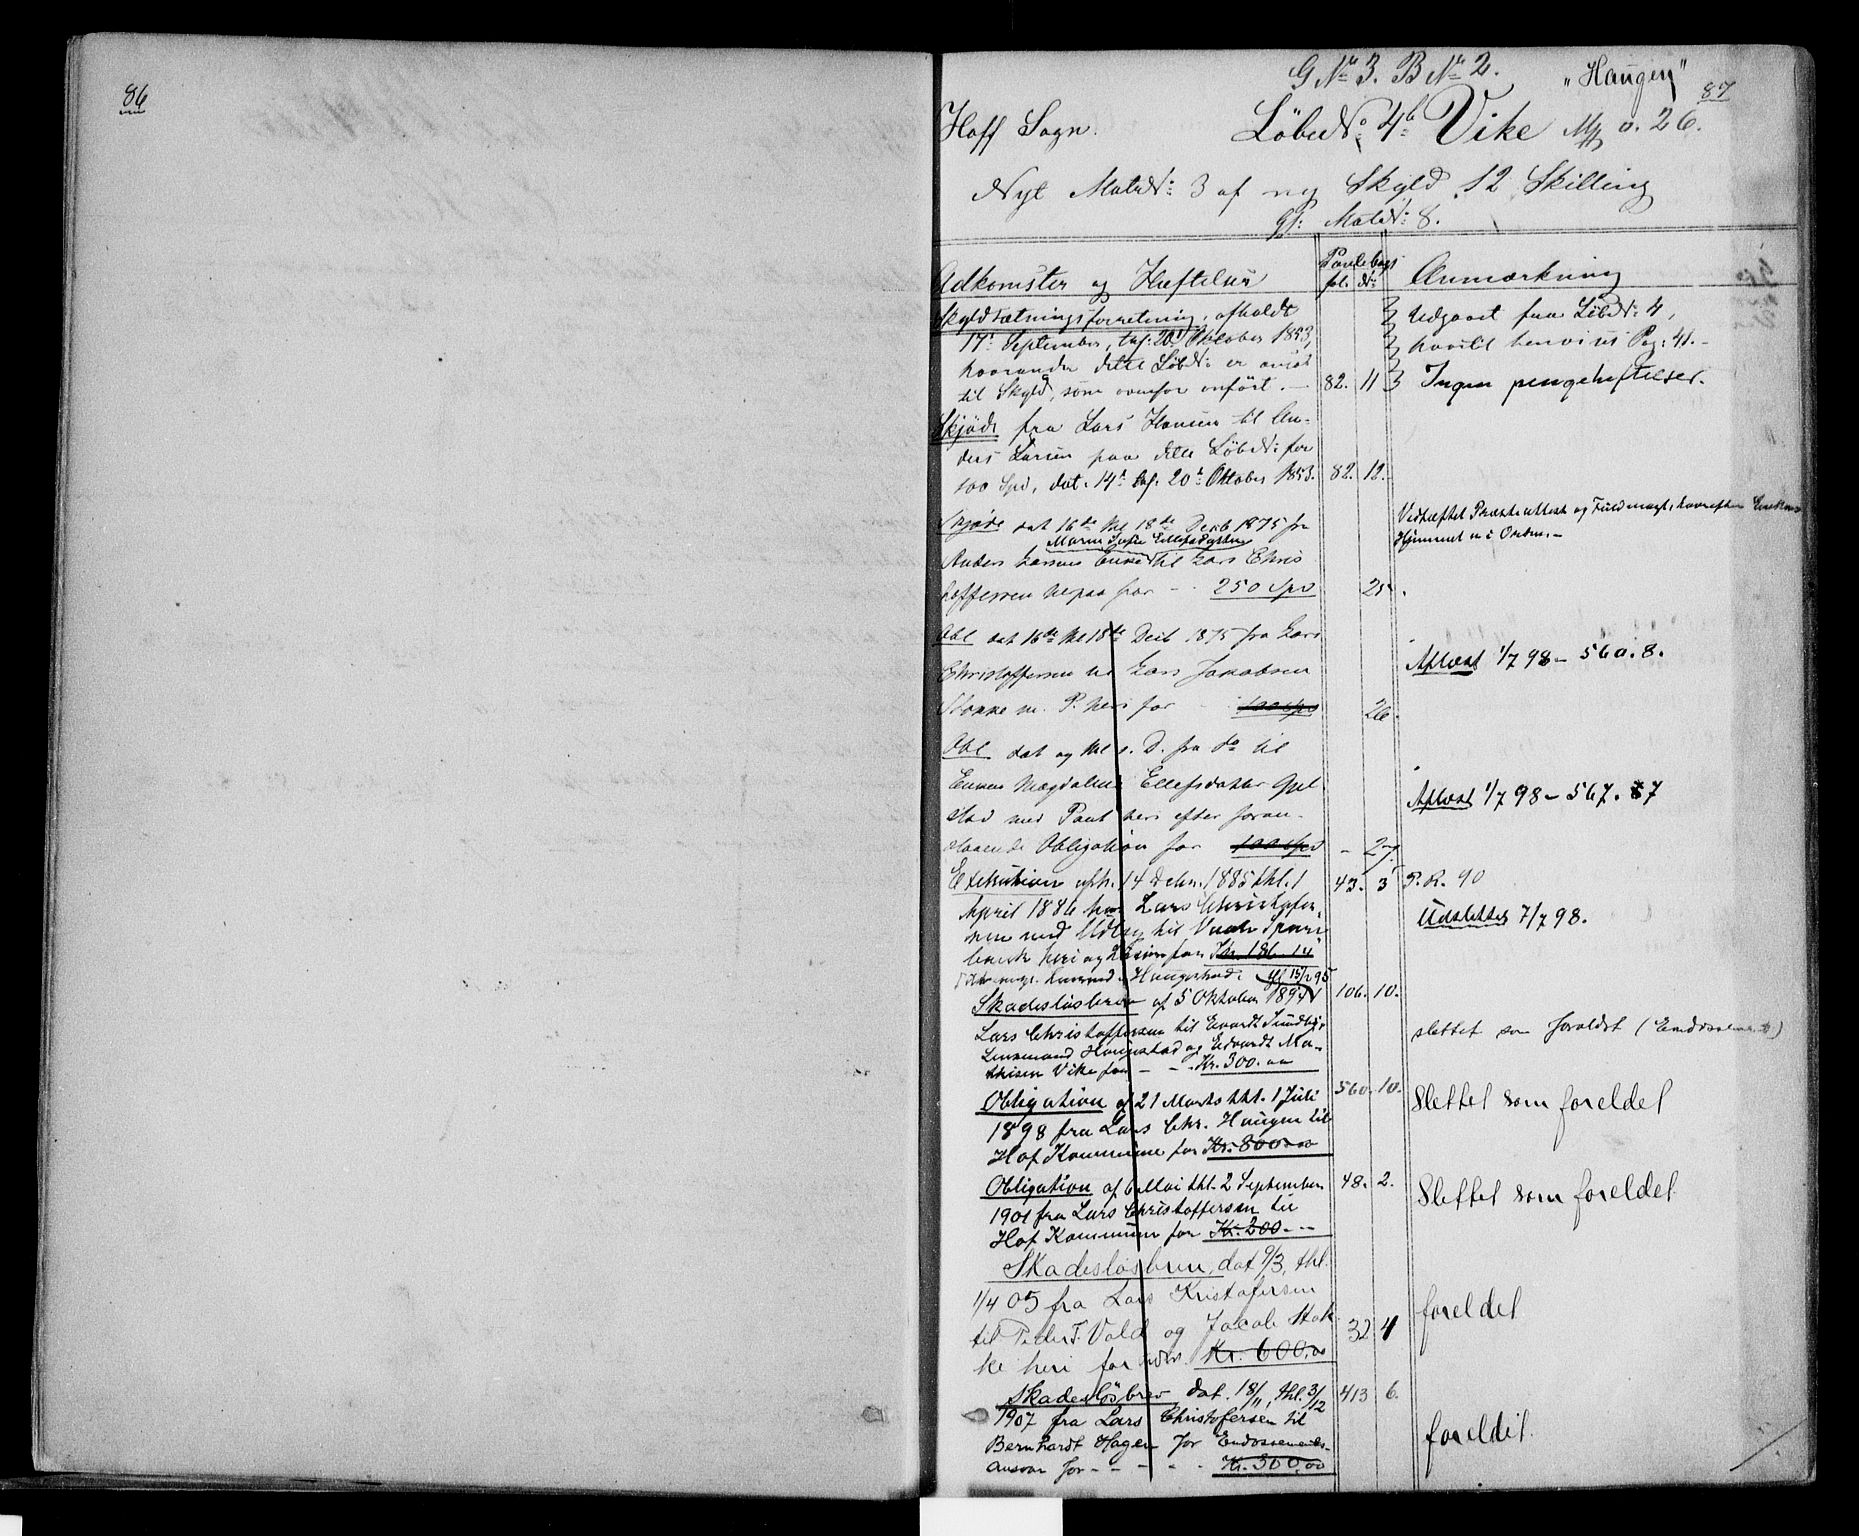 86
87
G№ 3. B№ 2.
"Haugen"
Hoff Sogn.
LøbeN: 4b Vike Mk 0.26.
Nyt MatrN: 3 af ny Skyld 12 Skilling
gl: MatrN: 8.
Adkomster og Hæftelser
Pantebogs
fol. N:
Anmærkning
Skyldsætningsforretning, afholdt
17. September, tgl. 20. Oktober 1853,
hvorunder dette LøbN: er ansat
til Skyld, som ovenfor anført. – 82. 11
Udgaaet fra LøbN: 4,
hvortil henvises Pag: 41. –
Ingen pengeheftelser.
Skjøde fra Lars Hansen til An-
ders Larsen paa dette LøbN: for
100 Spd, dat. 14. tgl. 20. Oktober 1853. 82. 12.
Skjøde dat 16de thl 18de Decb 1875 fra
Maren Sofie Ellefsdatter
Anders Larsens Enke til Lars Chris
toffersen herpaa for – 250 Spd 25.
Vedhæftet Præsteattest og Fuldmagt, hvorefter Enkens
Hjemmel er i Orden. –
Obl dat 16de thl 18de Decb 1875 fra Lars
Christoffersen til Lars Jakobsen
Stokke m. P. heri for 100 Spd 26.
Aflæst 1/7 98 – 560. 8.
Obl dat og thl s. D. fra do til
Enken Magdalene Ellefsdatter Gjel
stad med Pant heri efter foran-
staaende Obligation for 100 Spd – 27.
Aflæst 1/7 98 – 567. 7
Execution afh. 14 Decbr. 1885 thl. 1
April 1886 hos Lars Christofer-
sen med Udlæg til Vaale Spare
bank heri og Løsøre for Kr. 186.14
43. 3 P. R. 90
Udslettet 7/7 98.
Skadesløsbrev af 5 Oktober 1894 thl 15/1 95
106. 10.
Lars Christoffersen til Evardt Sundby,
Lensmand Haugestad og Edvardt Ma-
thisen Vike for – – Kr. 300.00
slettet som foreldet
Obligation af 21 Marts thl. 1 Juli 560. 10.
1898 fra Lars Chr. Haugen til
Hof Kommune for Kr. 800.00
Slettet som foreldet
Obligation af 6 Mai thl. 2 September 48. 2.
1901 fra Lars Christoffersen til
Hof Kommune for Kr. 200. –
Slettet som foreldet
Skadesløsbrev, dat 9/3, thl.
1/4 05 fra Lars Kristofersen
til Peder T. Vold og Jacob Stok
ke heri for Kr. 600.00
32 4
foreldet
Skadesløsbrev dat. 18/11, thl. 3/12 413 6.
1907 fra Lars Christofersen til
Bernhardt Hagen for Endossements-
ansvar for – – – – Kr. 500.00
foreldet.